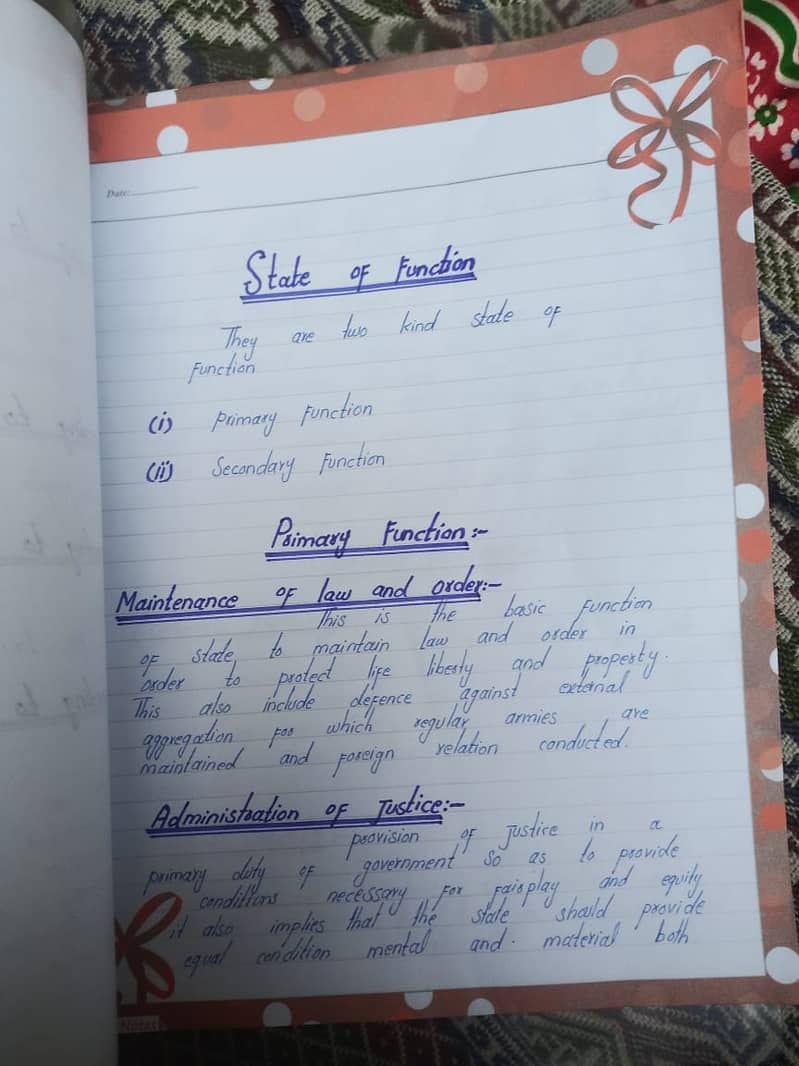 Date:
State of Function
They are two kind state of
Function
(i) Primary Function
(ii) Secondary Function
Primary Function:-
Maintenance of law and order:-
This is the basic Function
of state to maintain law and order in
order to protect life liberty and property.
This also include defence against external
aggregation for which regular armies are
maintained and foreign relation conducted.
Administration of Justice:-
provision of Justice in a
primary duty of government so as to provide
conditions necessary for fairplay and equity
it also implies that the state should provide
equal condition mental and material both
Notes